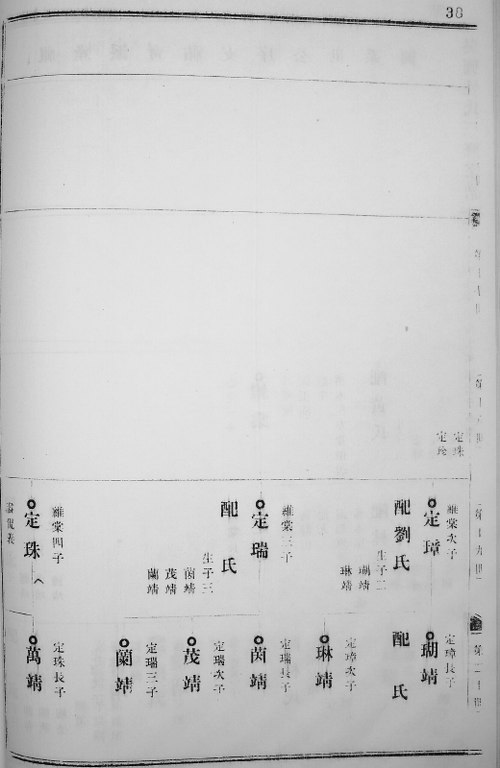 38
定珠
定璋
維棠次子
配劉氏
生子二
瑚靖
琳靖
維棠三子
定瑞
配 氏
生子三
茵靖
茂靖
蘭靖
維棠四子
定珠
定璋長子
瑚靖
配 氏
定璋次子
琳靖
定瑞長子
茵靖
定瑞次子
茂靖
定瑞三子
蘭靖
定珠長子
萬靖